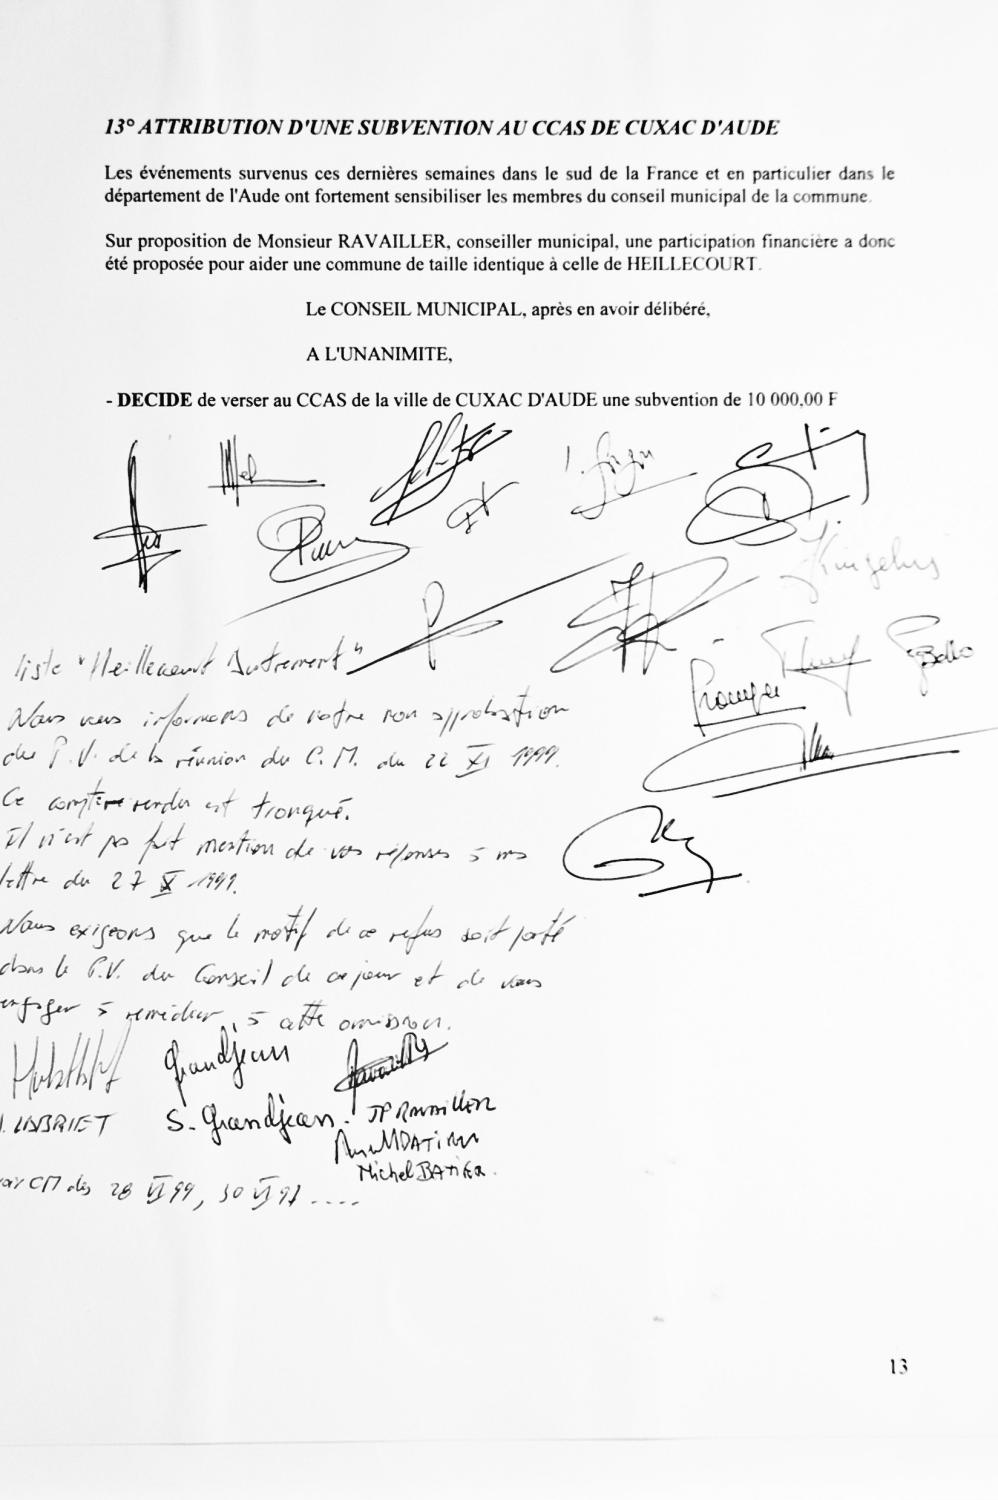 13° ATTRIBUTION D'UNE SUBVENTION AU CCAS DE CUXAC D'AUDE
Les événements survenus ces dernières semaines dans le sud de la France et en particulier dans le
département de l'Aude ont fortement sensibiliser les membres du conseil municipal de la commune.
Sur proposition de Monsieur RAVAILLER, conseiller municipal, une participation financière a donc
été proposée pour aider une commune de taille identique à celle de HEILLECOURT.
Le CONSEIL MUNICIPAL, après en avoir délibéré,
A L'UNANIMITE,
- DECIDE de verser au CCAS de la ville de CUXAC D'AUDE une subvention de 10 000,00 F
liste "Heillecourt Autrement"
Nous vous informons de notre non approbation
du P.V. de la réunion du C.M. du 22 XI 1999.
Ce compte rendu est tronqué.
Il n'est pas fait mention de vos réponses à
lettre du 27 X 1999.
Nous exigeons que le motif de ce refus soit porté
dans le P.V. du Conseil de ce jour et de vous
engager à remédier à cette omission.
Grandjean
LABRIET S. Grandjean. JP RAVAILLER
Michel BATIER.
CM des 28 VI 99, 30 VI 97 ....
13